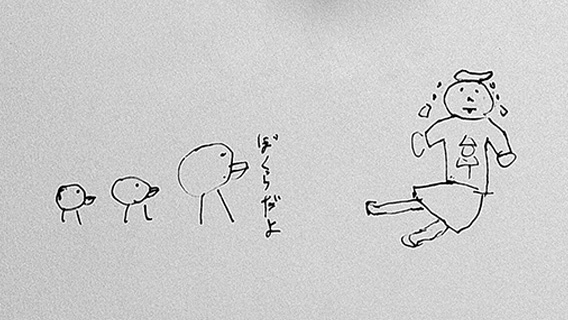 ぼくらだよ